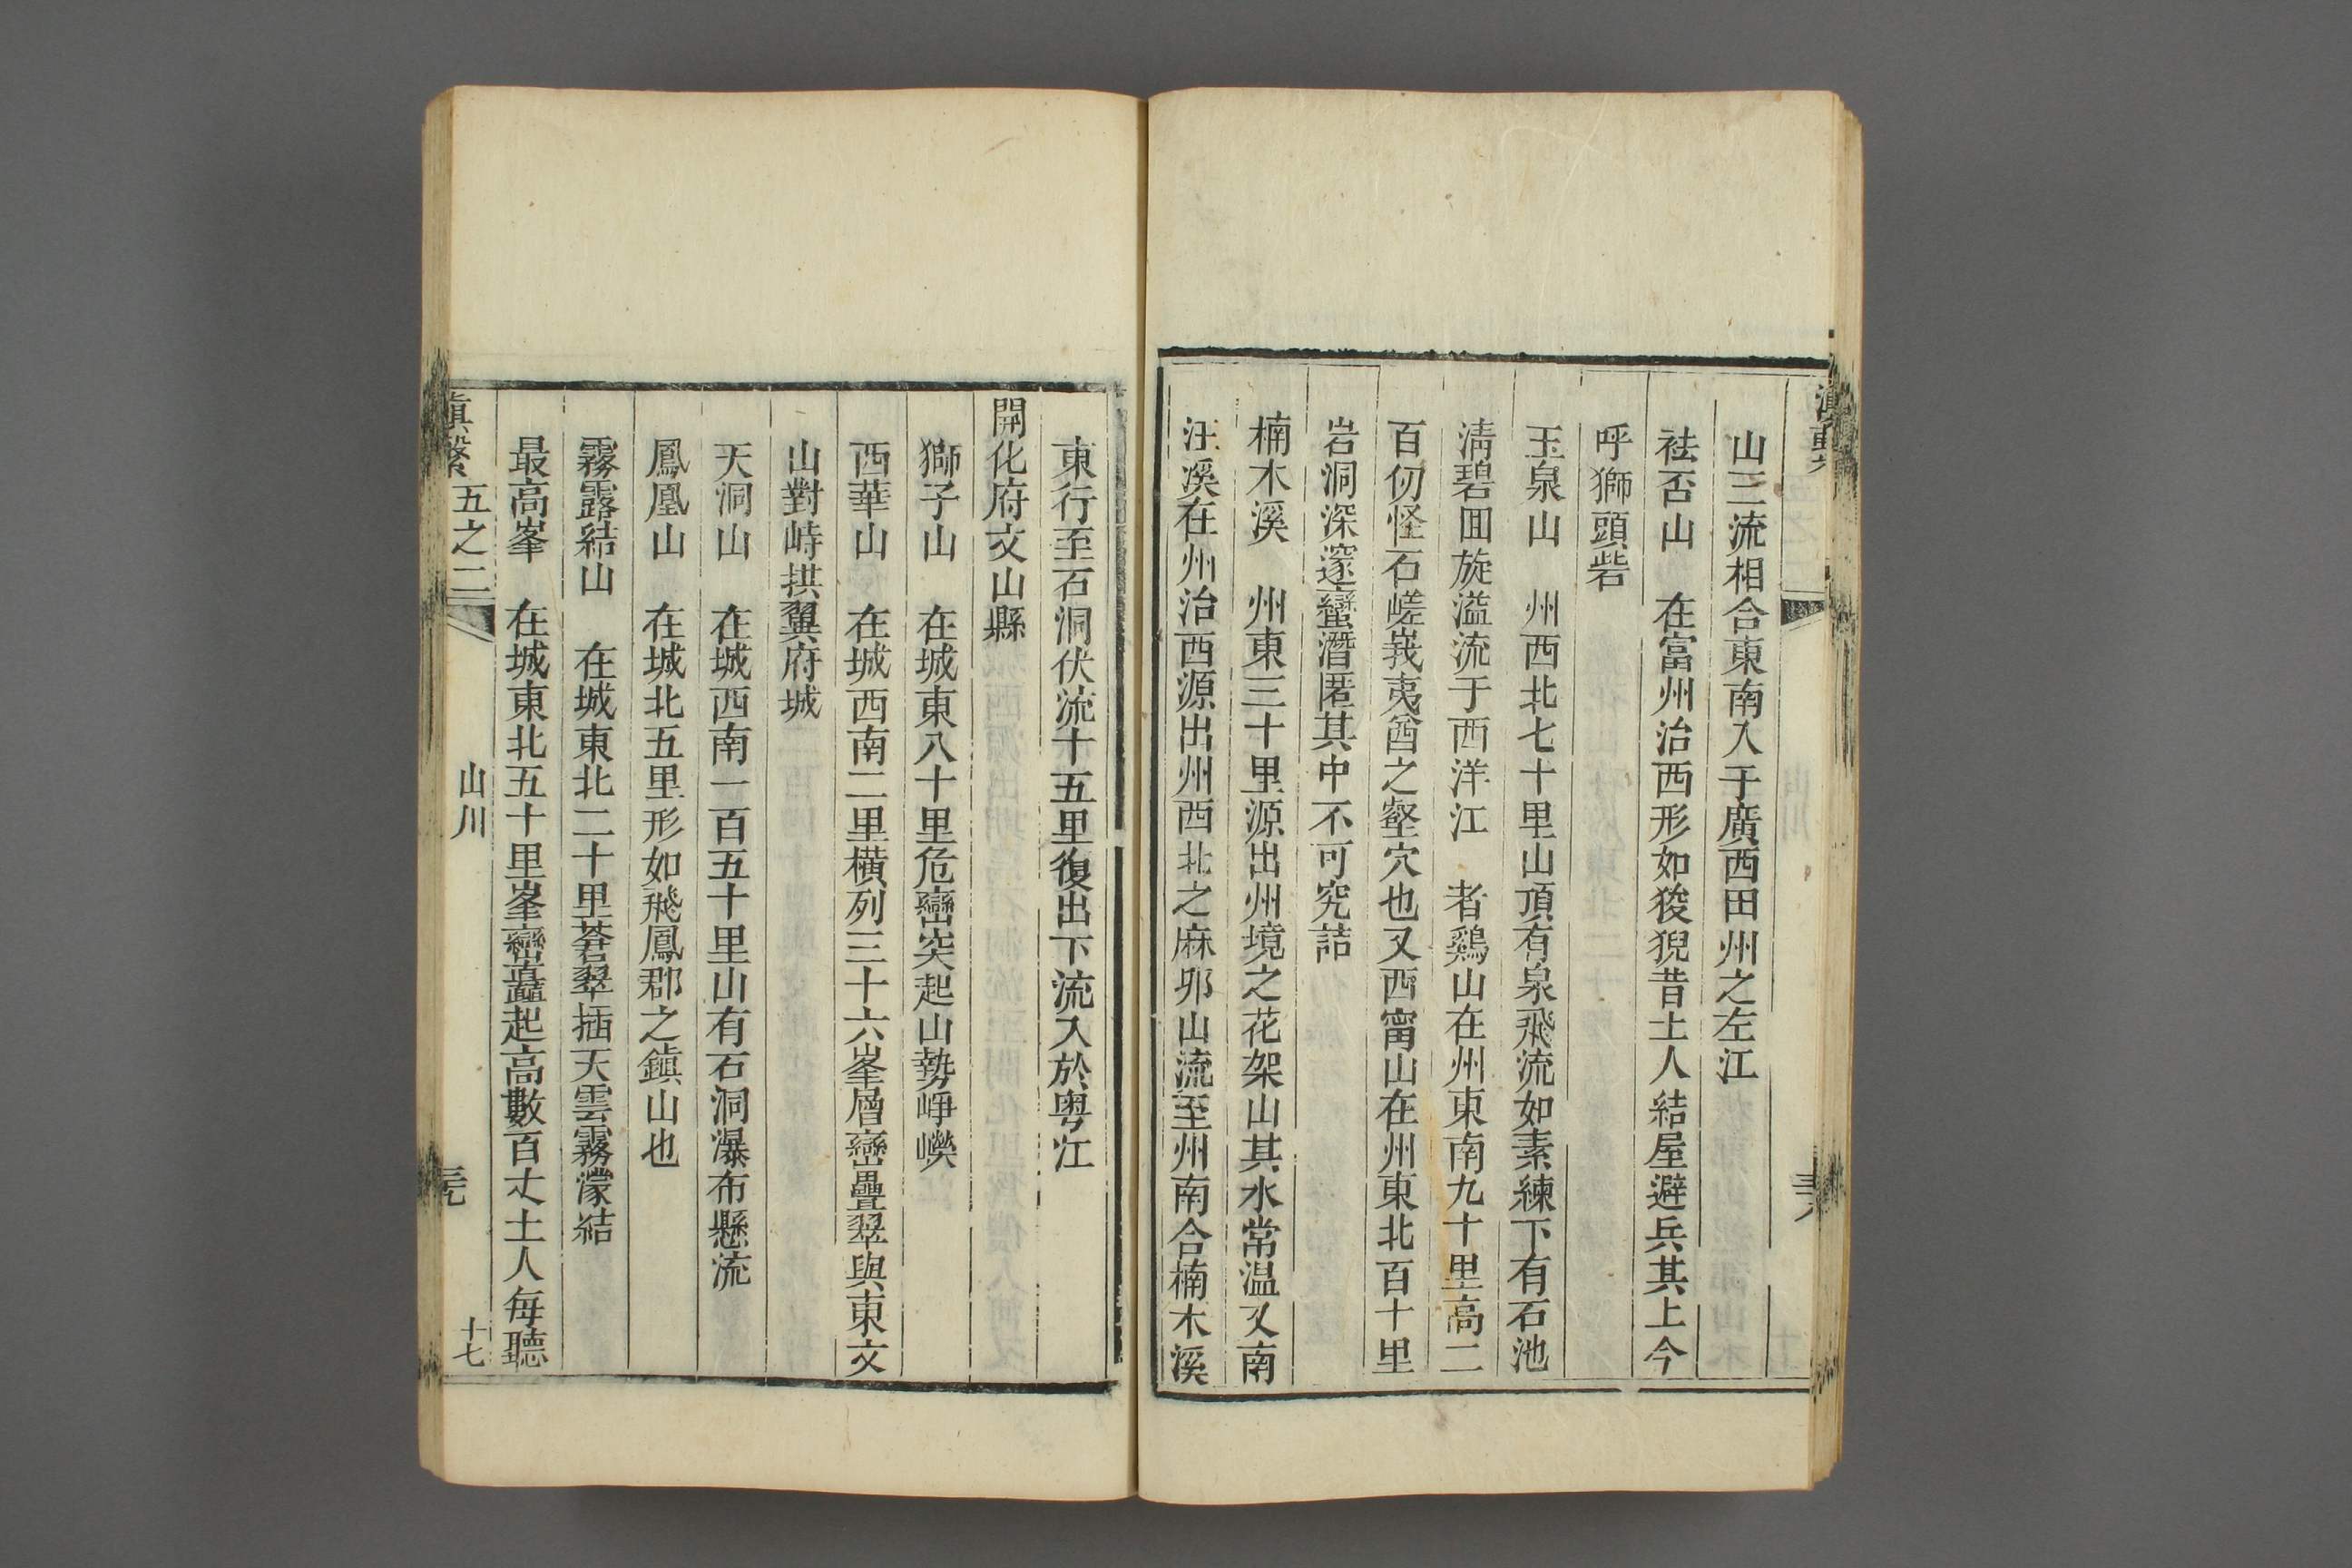 山三流相合東南入于廣西田州之左江
祛否山　在富州治西形如狻猊昔土人結屋避兵其上今
呼獅頭砦
玉泉山　州西北七十里山頂有泉飛流如素練下有石池
淸碧囬旋溢流于西洋江　者鷄山在州東南九十里高二
百仞怪石嵯峩夷酋之壑穴也又西甯山在州東北百十里
岩洞深邃蠻潛匿其中不可究詰
楠木溪　州東三十里源出州境之花架山其水常温又南
汪溪在州治西源出州西北之麻夘山流至州南合楠木溪
東行至石洞伏流十五里復出下流入於粤江
開化府文山縣
獅子山　在城東八十里危巒突起山勢崢嶸
西華山　在城西南二里橫列三十六峯層巒疊翠與東文
山對峙拱翼府城
天洞山　在城西南一百五十里山有石洞瀑布懸流
鳳凰山　在城北五里形如飛鳳郡之鎭山也
霧露結山　在城東北二十里蒼翠插天雲霧濛結
最高峯　在城東北五十里峯巒矗起高數百丈土人每聽
滇繫 五之二 山川 十七